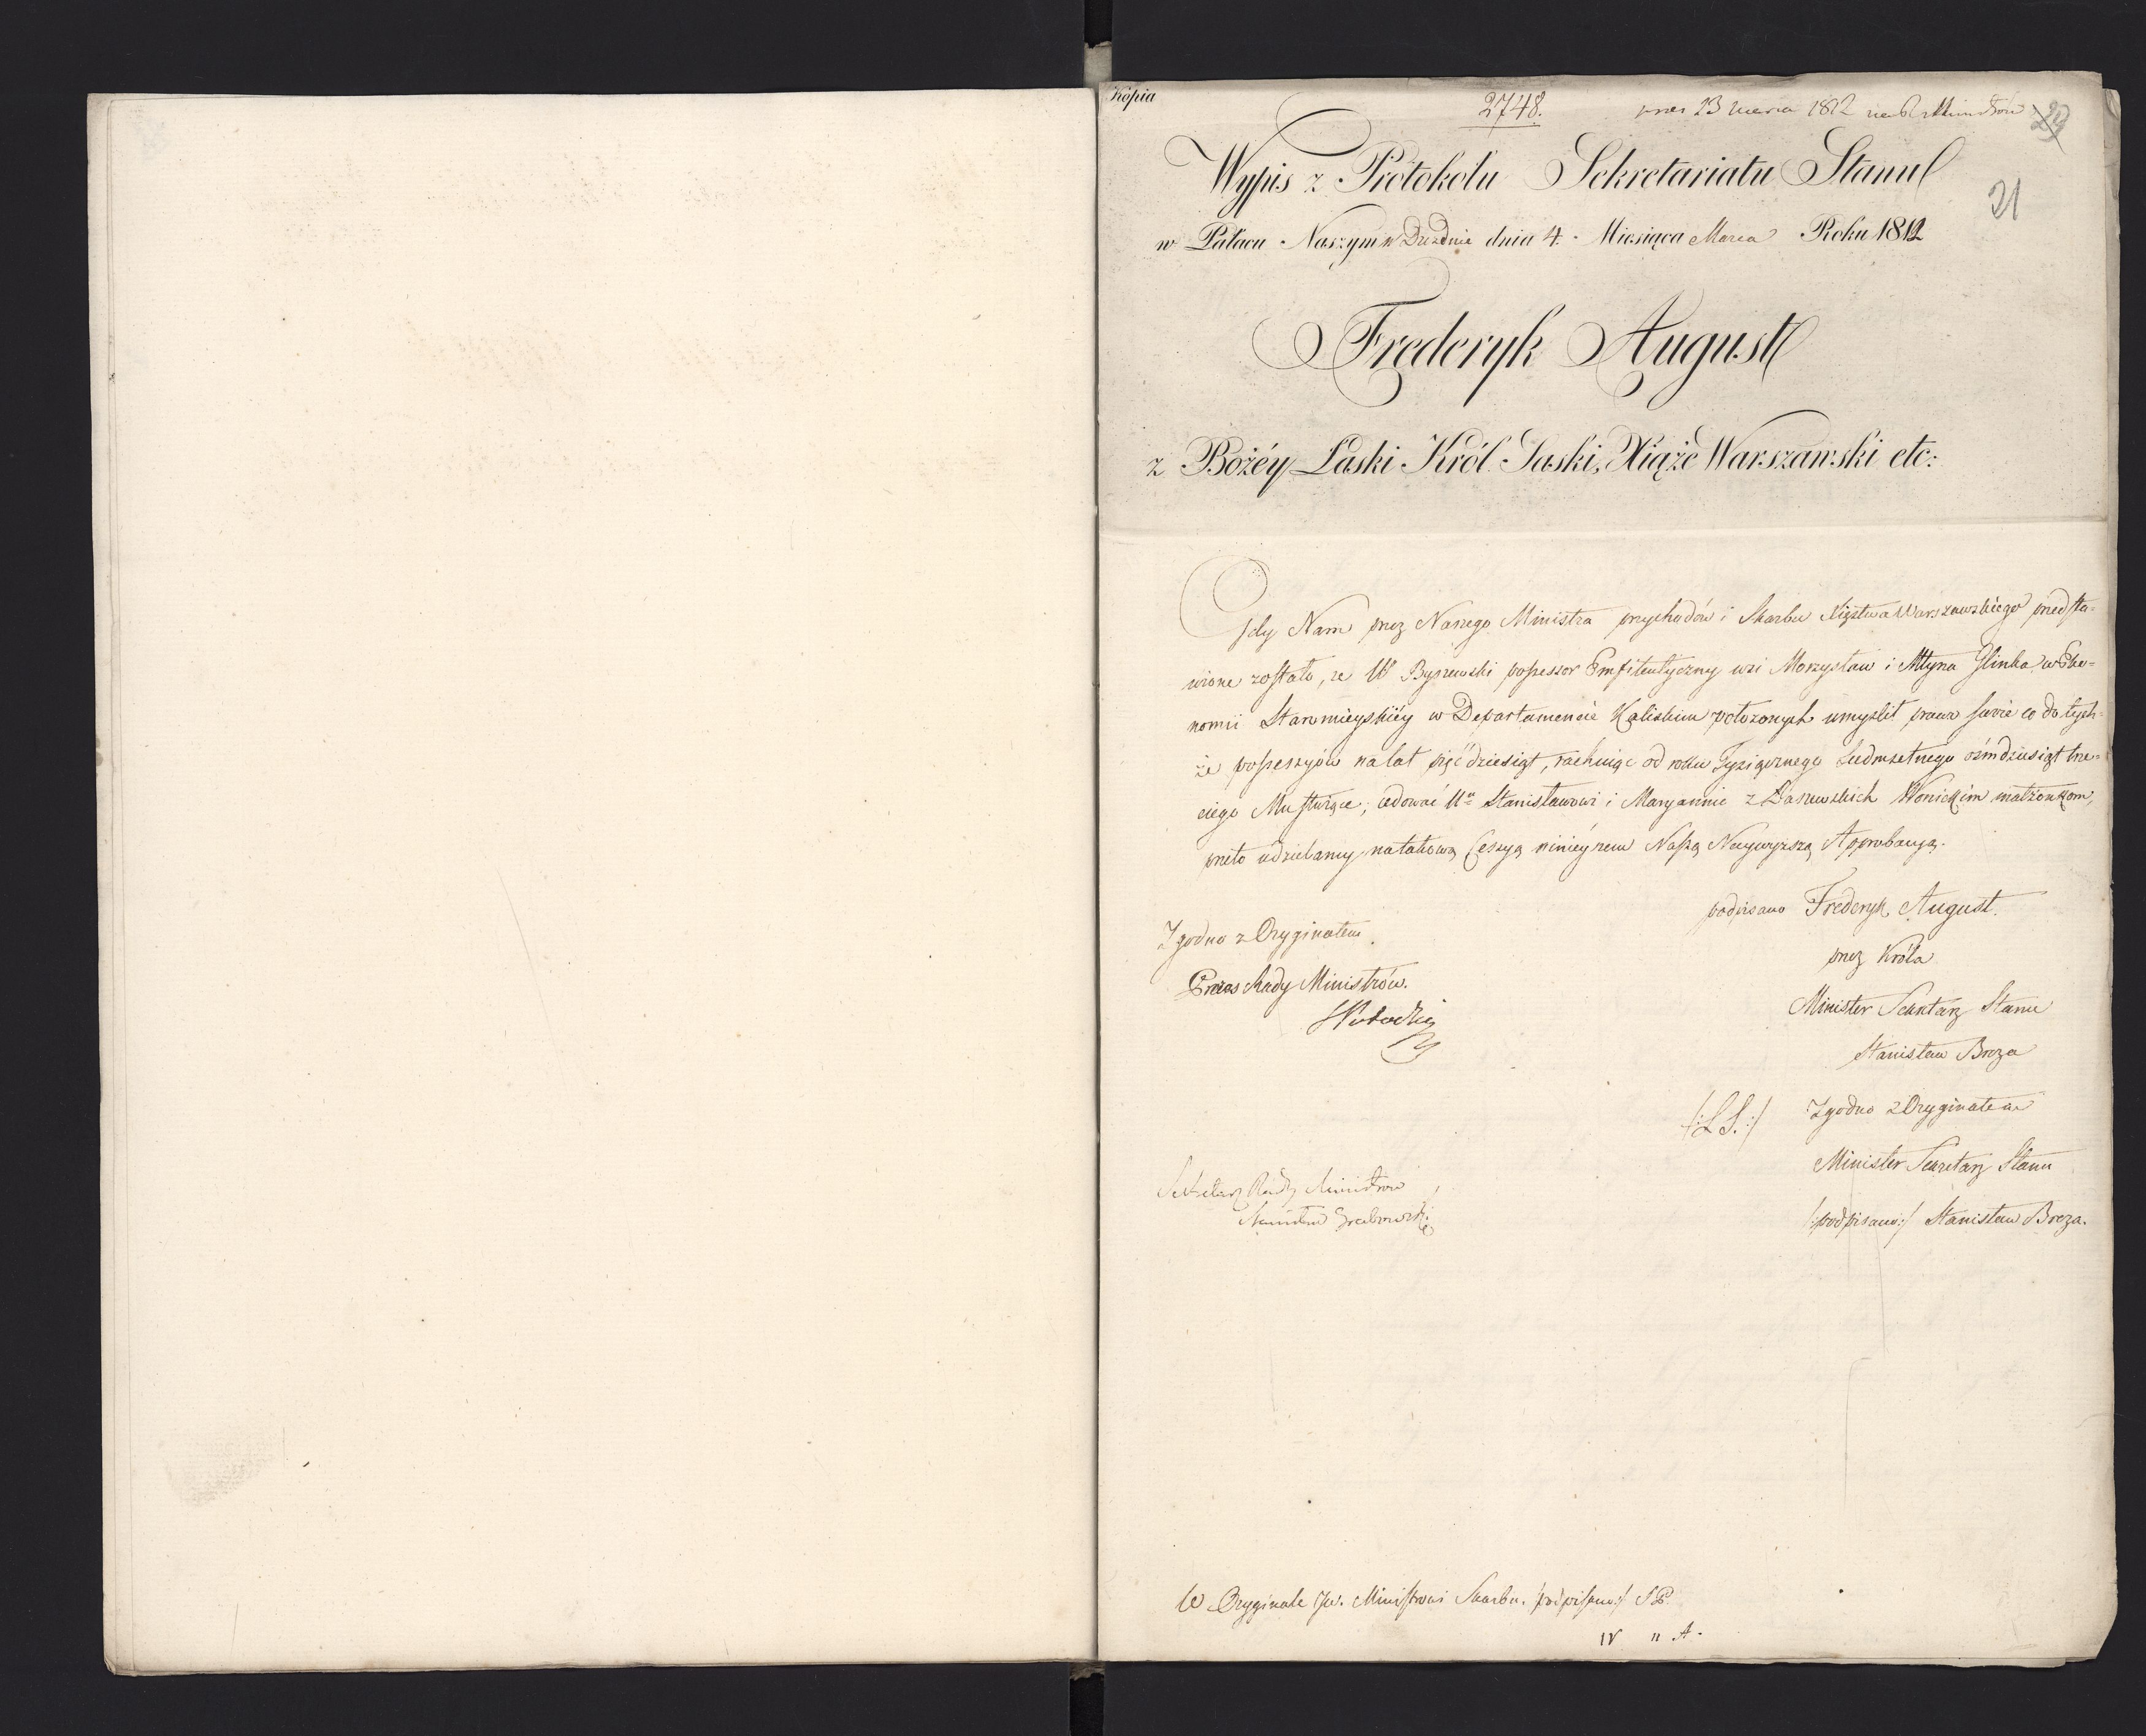 Kopia
2748.
pres 23 Marca 1812 na R Ministrów
21
Wypis z Protokołu Sekretariatu Stanu
w Pałacu Naszym w Dreźnie dnia 4. Miesiąca Marca Roku 1812
Frederyk August
z Bożéy Łaski Król Saski, Xiąże Warszawski etc:
Gdy Nam przez Naszego Ministra przychodów i Skarbu Xięstwa Warszawskiego przedsta=
wione zostało, że Ur Byszewski possessor Emfiteutyczny wsi Morzysław i Młyna Glinka w Eko=
nomii Staromieyskiéy w Departamencie Kaliskim położonych umyślił prawo swoie co do tych=
że possessyów na lat pięćdziesiąt, rachuiąc od roku Tysiącznego Siedmsetnego ośmdziesiąt trze=
ciego służące, cedować Ur Stanisławowi i Maryannie z Wonickim małżonkom,
przeto udzielamy na takową Cessyą ninieyszem Naszą Naywyższą Approbacyą.
podpisano Frederyk August.
przez Króla
Minister Sekretarz Stanu
Stanisław Breza
Zgodno z Oryginałem
Prezes Rady Ministrów.
(:L.S.:) Zgodno z Oryginałem
Minister Sekretarz Stanu
(podpisano:) Stanisław Breza.
Sekretarz Rady Ministrów
Stanisław Grabowski
W Oryginale JW. Ministrowi Skarbu. (podpisano:) S B
IV n A.